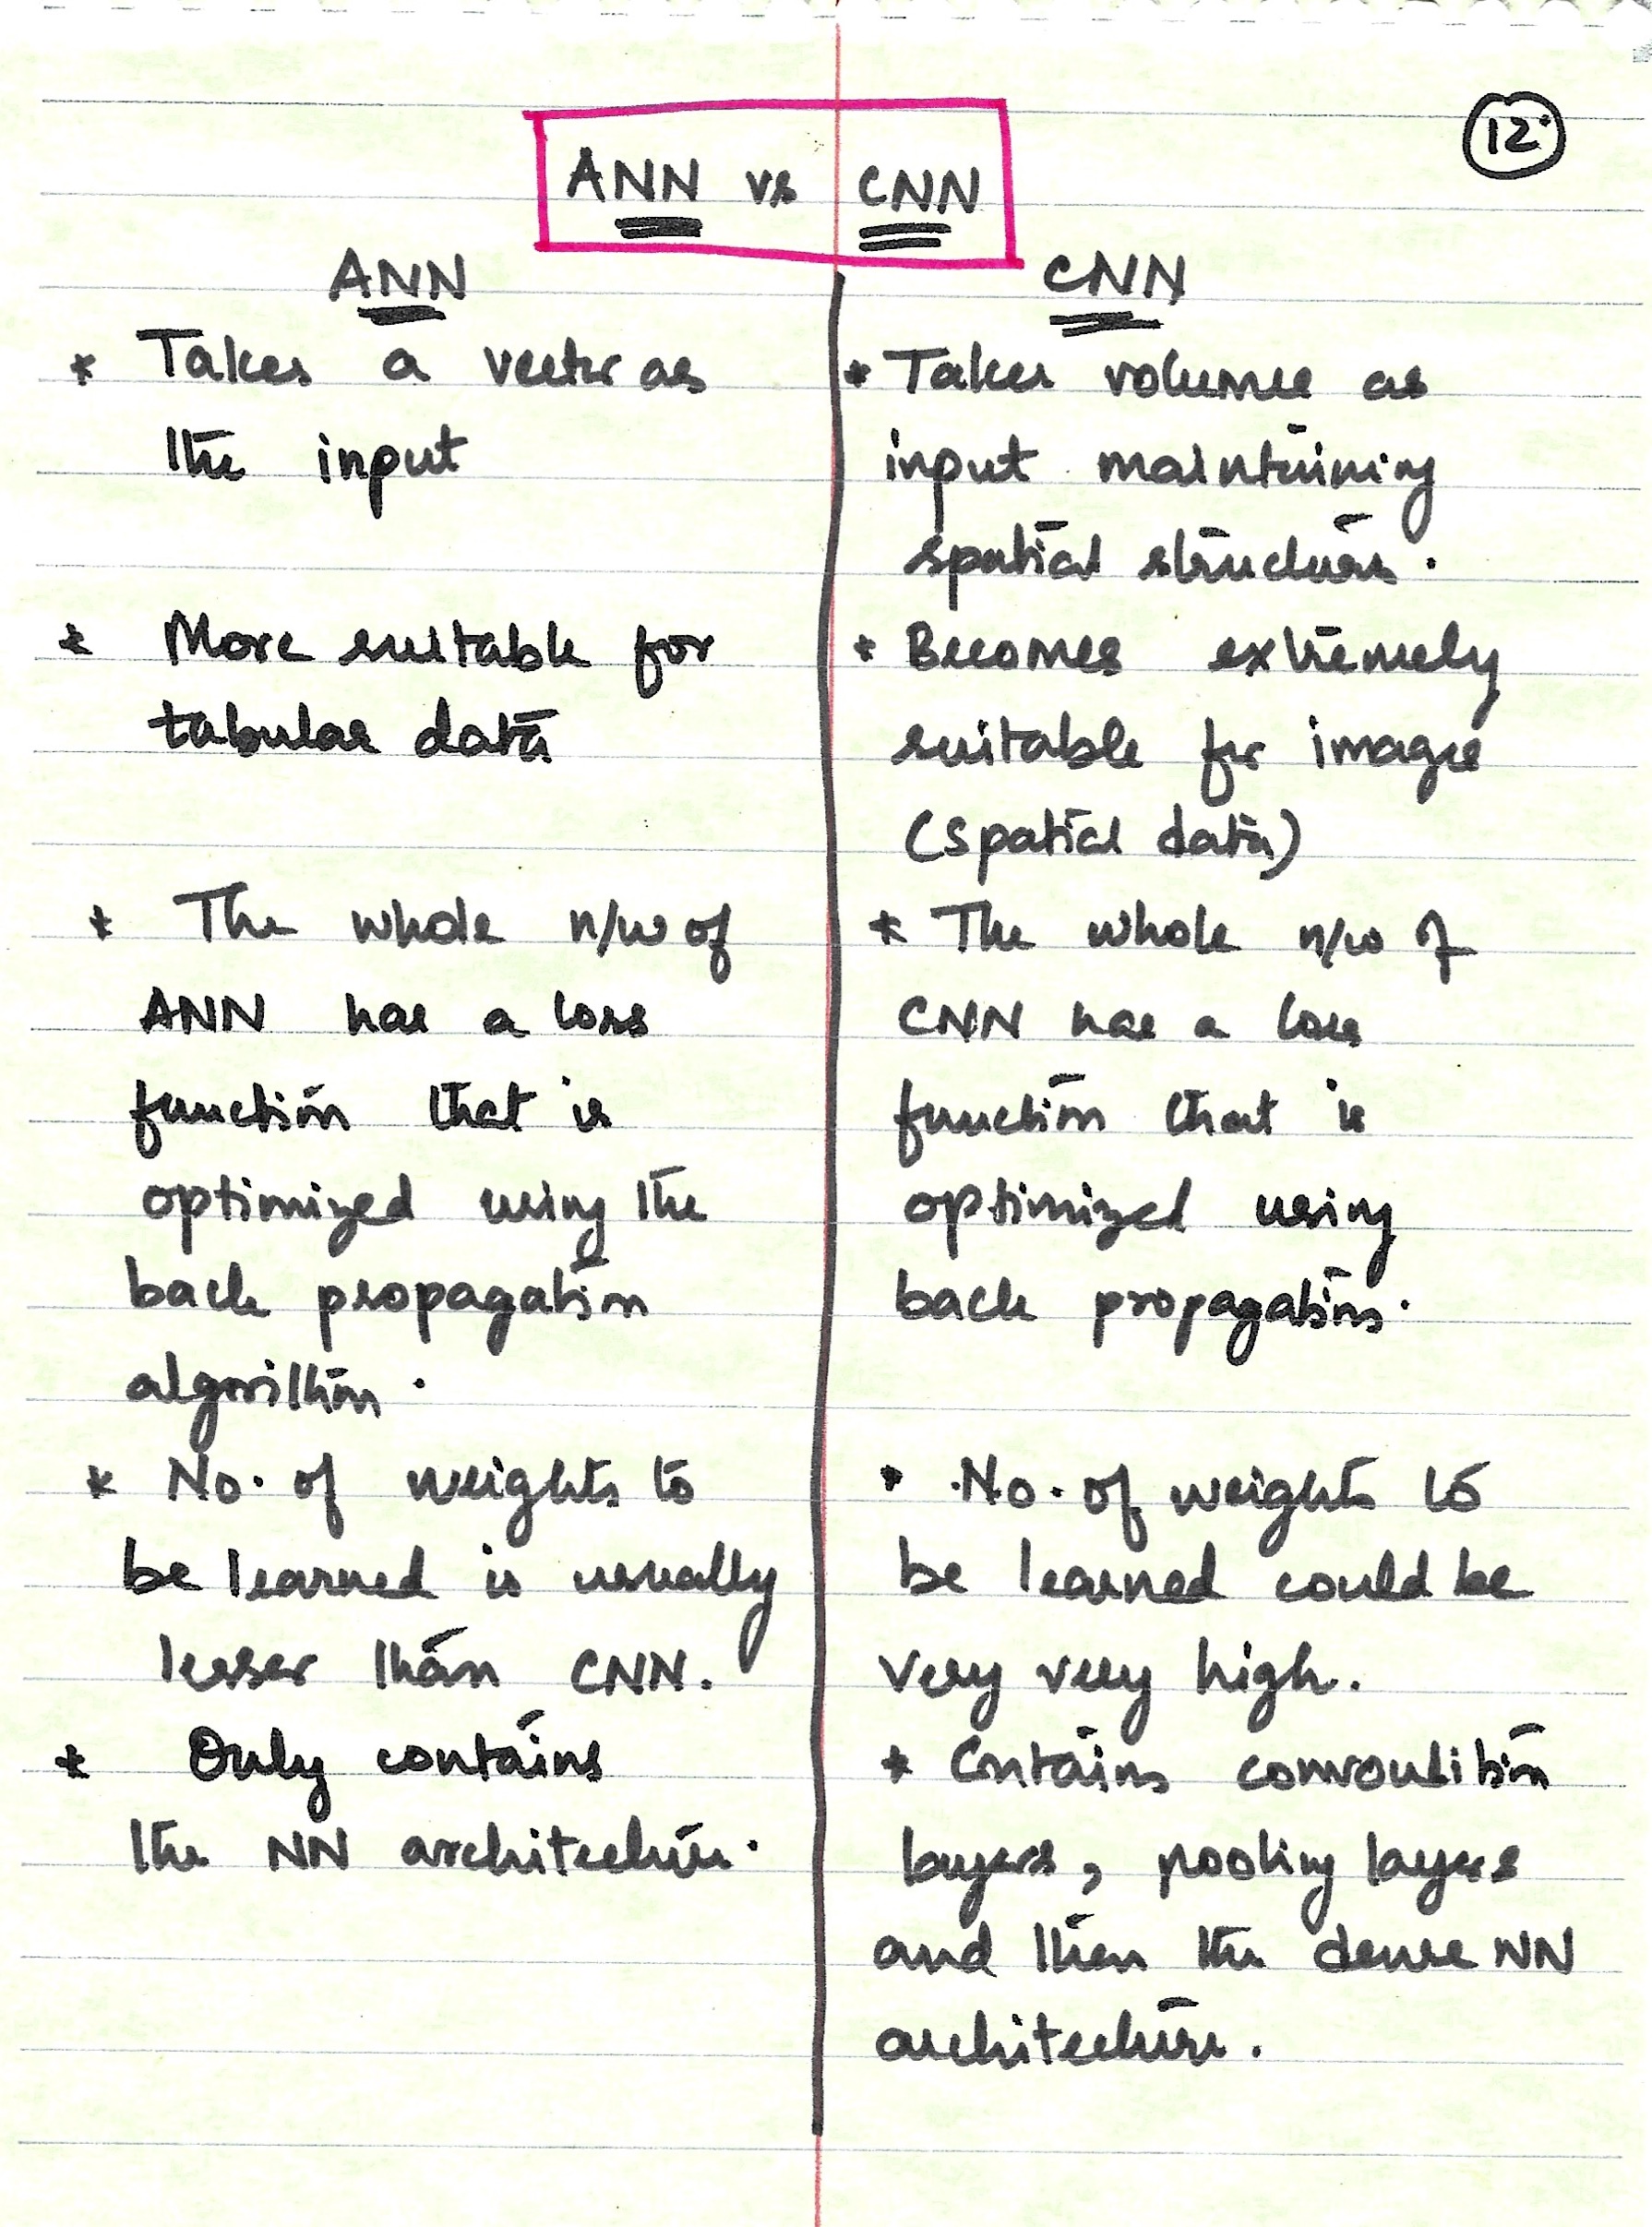 12.
ANN vs CNN
ANN
* Takes a vector as
the input
* More suitable for
tabular data
* The whole n/w of
ANN has a loss
function that is
optimized using the
back propagation
algorithm.
* No. of weights to
be learned is usually
lesser than CNN.
* Only contains
the NN architecture.
CNN
* Takes volumes as
input maintaining
spatial structure.
* Becomes extremely
suitable for images
(spatial data)
* The whole n/w of
CNN has a loss
function that is
optimized using
back propagation.
* No. of weights to
be learned could be
very very high.
* Contains convoulition
layers, pooling layers
and then the dense NN
architecture.